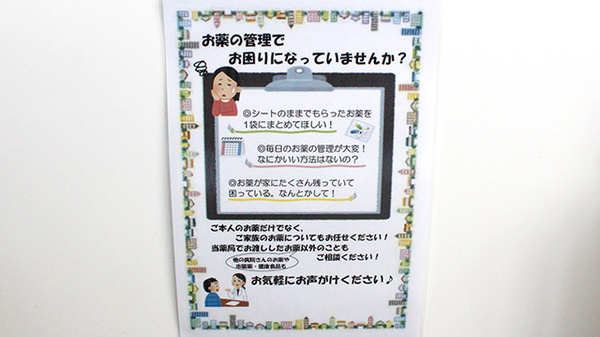 お薬の管理で
お困りになっていませんか?
◎シートのままでもらったお薬を
1袋にまとめてほしい!
◎毎日のお薬の管理が大変!
なにかいい方法はないの?
◎お薬が家にたくさん残っていて
困っている。なんとかして!
ご本人のお薬だけでなく、
ご家族のお薬についてもお任せください!
当薬局でお渡ししたお薬以外のことも
ご相談ください!
他の病院さんのお薬や
市販薬・健康食品も
お気軽にお声がけください♪